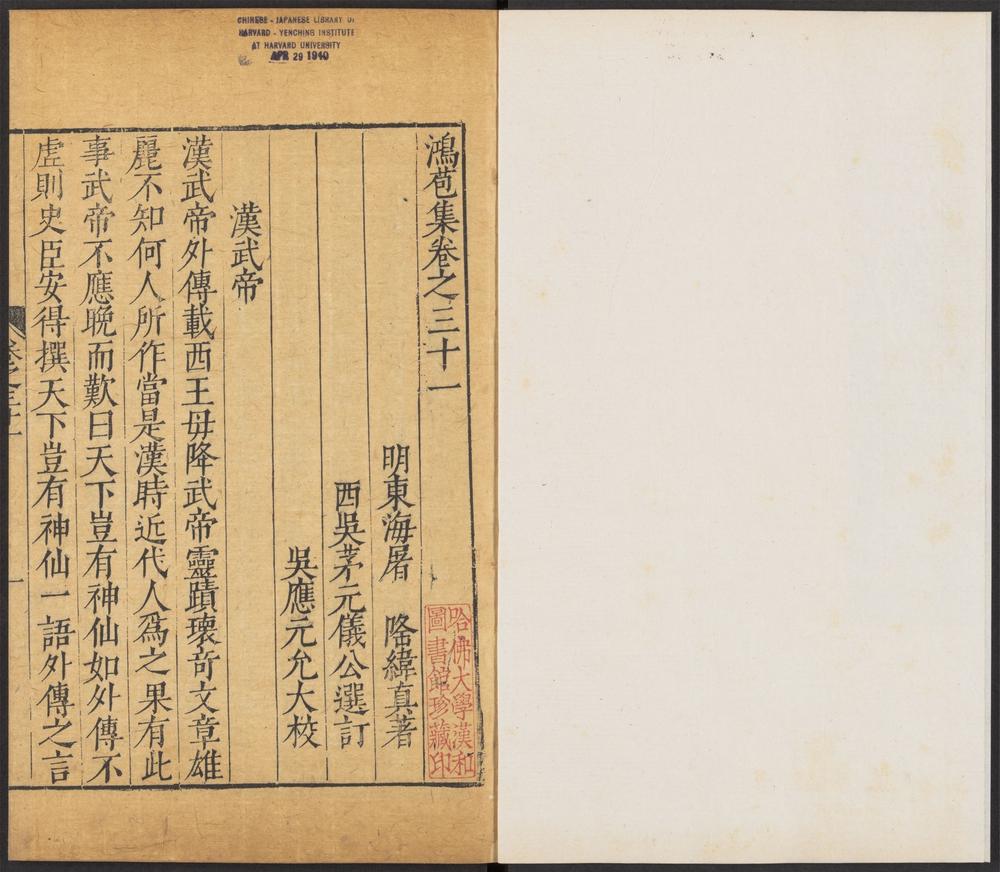 CHINESE - JAPANESE LIBRARY OF
HARVARD - YENCHING INSTITUTE
AT HARVARD UNIVERSITY
APR 29 1940
鴻苞集卷之三十一
明東海屠　隆緯真著
西吳茅元儀公選訂
吳應元允大校
漢武帝
漢武帝外傳載西王毋降武帝靈蹟瓌奇文章雄
麗不知何人所作當是漢時近代人爲之果有此
事武帝不應晚而歎曰天下豈有神仙如外傳不
虛則史臣安得撰天下豈有神仙一語外傳之言
卷之三十一
一
哈佛大學漢和
圖書館珍藏印